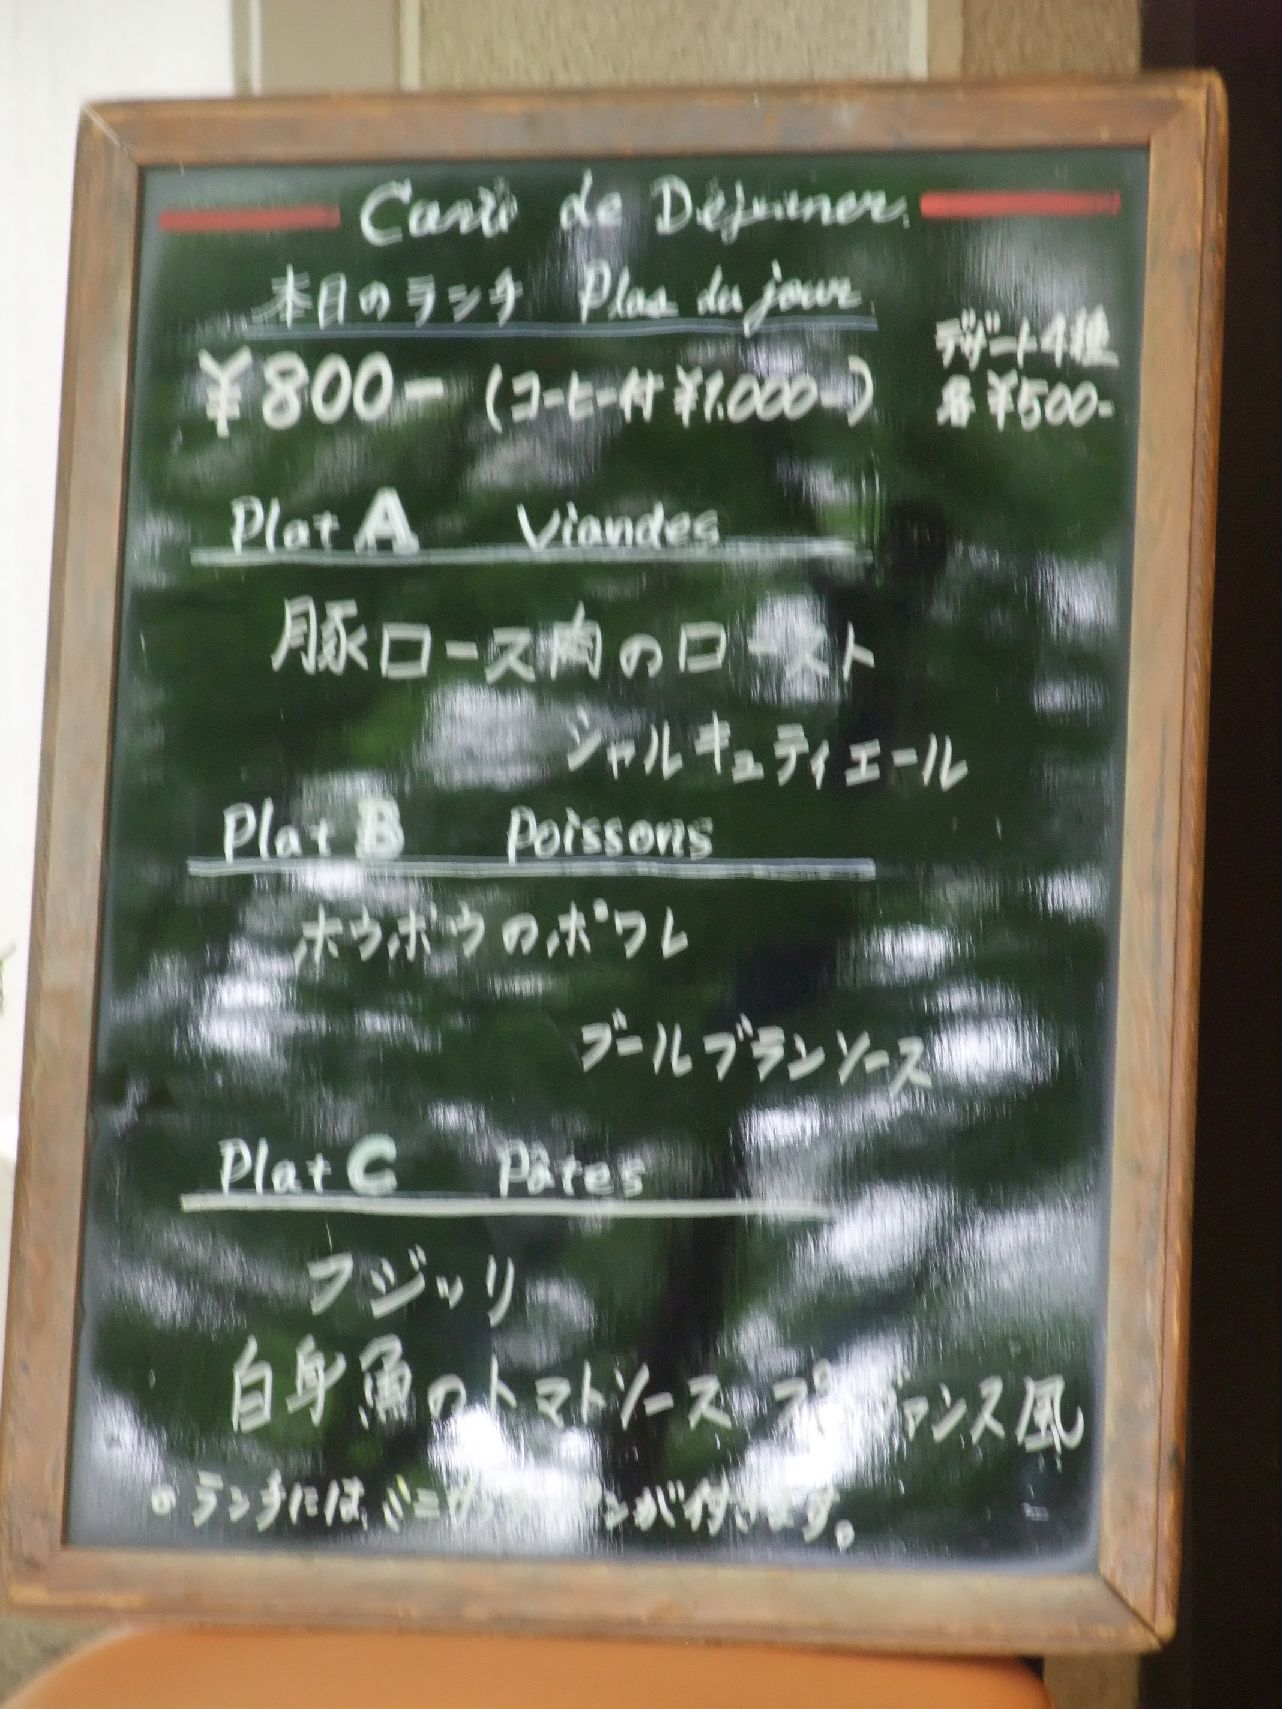 Carte de Déjeuner
本日のランチ Plat du jour
¥800- (コーヒー付¥1.000-)
デザート4種
各¥500-
Plat A Viandes
豚ロース肉のロースト
シャルキュティエール
Plat B Poissons
ホウボウのポワレ
ブールブランソース
Plat C Pâtes
フジッリ
白身魚のトマトソース プロヴァンス風
○ランチには、ミニサラダ パンが付きます。